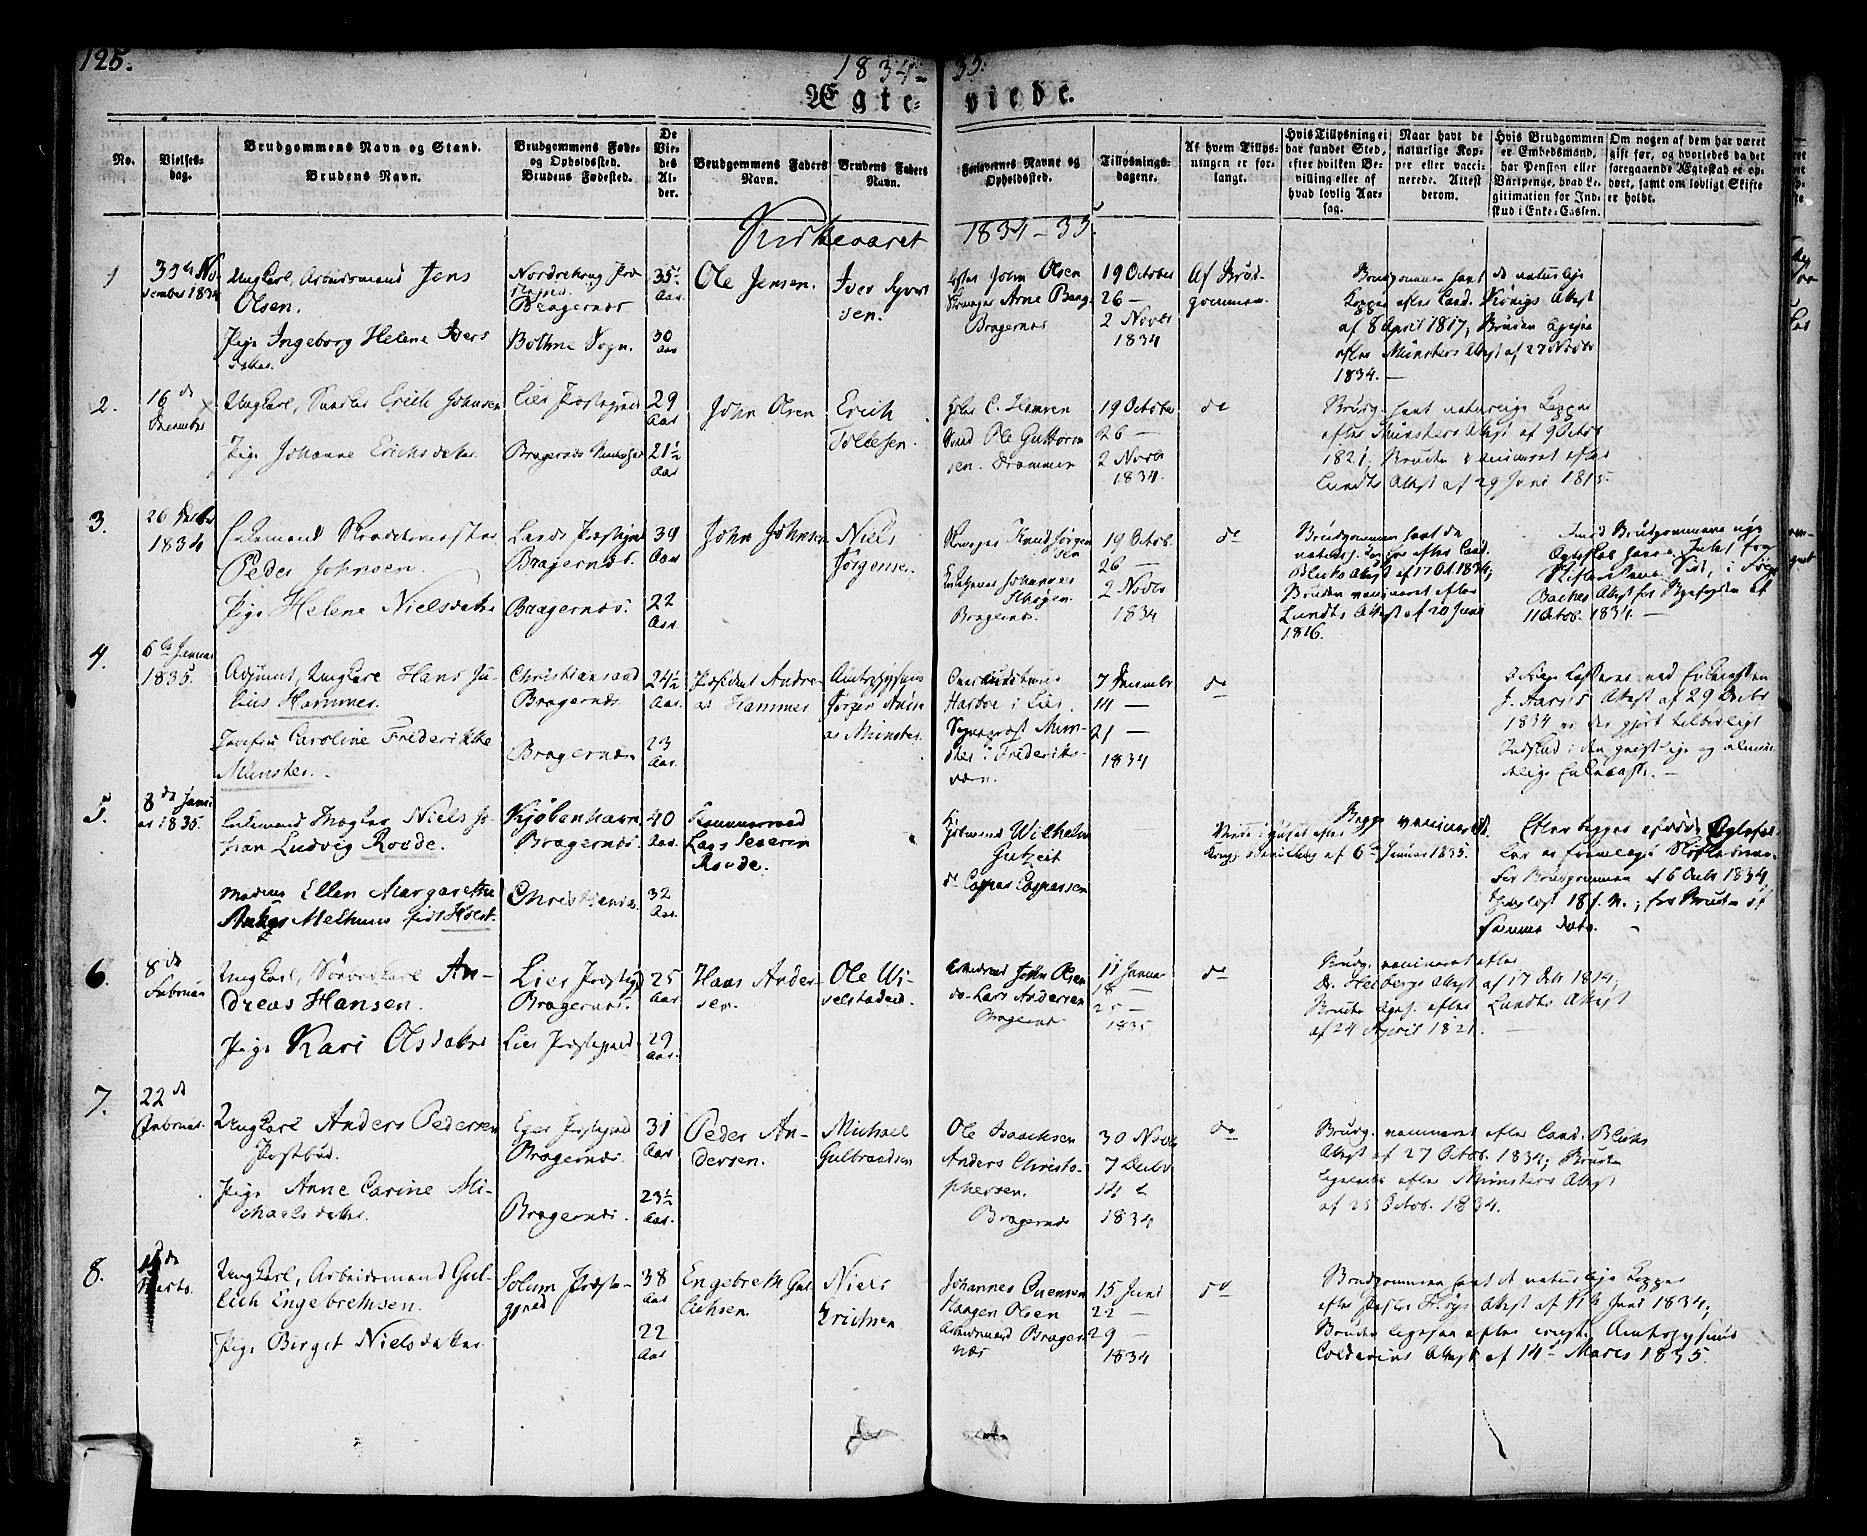 125.
1834-
35.
Ægte-
viede.
No.
Vielses-
dag.
Brudgommens Navn og Stand.
Brudens Navn.
Brudgommens Føde-
og Opholdssted.
Brudens Fødested.
De
Vie-
des
Al-
der.
Brudgommens Faders
Navn.
Brudens Faders
Navn.
Forlovernes Navne og
Opholdssted.
Tillysnings-
dagene.
Af hvem Tillys-
ningen er for-
langt.
Hvis Tillysning ei
har fundet Sted,
efter hvilken Be-
villing eller af
hvad lovlig Aar-
sag.
Naar havt de
naturlige Kop-
per eller vacci-
nerede. Attest
derom.
Hvis Brudgommen
er Embedsmand,
har Pension eller
Vartpenge, hvad Le-
gitimation for Ind-
skud i Enke-Cassen.
Om nogen af dem har været
gift før, og hvorledes da det
foregaaende Ægteskab er op-
hørt, samt om lovligt Skifte
er holdt.
Kirkeaaret
1834-35.
1
November 1834
Ungkarl, Arbeidsmand Jens
Olsen.
Pige Ingeborg Helene Ivers
datter.
Bragernæs
Bothne Sogn.
35½
Aar.
30
Aar
Ole Jensen.
Iver Syver
sen.
John Olsen
Arne Berg
Bragernæs
19 October
26 —
2 Novbr
1834
Af Brud-
gommen.
Brudgommen havt de naturlige
Kopper efter Cand. Königs Attest
af 8 April 1817; Bruden ligesaa
efter Münsters Attest af 27 Novbr
1834. —
2.
16 de
December
Ungkarl, Erich Johnsen
Pige Johanne Erichsdatter.
Lier Præstegjeld
Bragernæs
29
Aar
21½
Aar
John Olsen
Erich
Tollefsen.
C. Hansen
Ole Guttorm
sen. Drammen
19 October
26 —
2 Novbr
1834.
do
Brudg. havt naturlige Kopper
efter Münsters Attest af 9 Octob
1821; Bruden vaccineret efter
Lundts Attest af 29 Juni 1815.
3.
26 Decbr
1834
Enkemand Skrædermester
Peder Johnsen.
Pige Helene Nielsdatter
Lands Præstegjeld
Bragernæs.
Bragernæs.
39
Aar
22
Aar.
John Johnsen
Niels
Jørgensen.
Knud Jørgen
sen
Johannes
Bragernæs.
19 Octob.
26 —
2 Novbr
1834
do
Brudgommen havt de
naturl. Kopper efter Cand.
Blichs Attest af 17 Oct. 1834;
Bruden vaccineret efter
Lundts Attest af 20 Juni
1816.
11 Octob. 1834. —
4.
6te Januar
1835.
Adjunct, Ungkarl Hans Ju-
lius Hammer.
Jomfru Caroline Frederikke
Münster.
Christiansand
Bragernæs.
Bragernæs
24½
Aar.
23
Aar.
President Andre-
as Hammer
Jørgen Andre
as Münster.
Harboe i Lier.
Sognepræst Mün-
ster i Frederiks-
værn.
7 December
14 —
21 —
1834
do
J. Aars's Attest af 29 Decbr
1834 er der gjort tilbørligt
Indskud i den geistlige og almin
delige Enkecasse. —
5.
8de Janu
ar 1835.
Enkemand Mægler Niels Jo-
han Ludvig Roode.
Madame Ellen Margarethe
Melhuus født Holst.
Kjøbenhavn
Bragernæs.
Christiania.
40
Aar.
32
Aar.
Kammerraad
Lars Severin
Roode.
Kjøbmand Wilhelm
Gutzeit
do Casper Caspersen
Viede i Huset efter
Kongl. Bevilling af 6te Januar 1835.
Begge vaccinered.
Efter begges afdøde Ægtefæl
ler er fremlagt Skifteattest
for Brudgommen af 6 Decb 1834,
for Bruden af
samme Dato.
6.
8de
Februar
Ungkarl, An-
dreas Hansen.
Pige Kari Olsdatter
Lier Præstegjd
Bragernæs.
Lier Præstegjeld
25
Aar
29
Aar.
Hans Ander-
sen.
Ole Wi-
velstadeid.
John Olsen
do Lars Andersen
Bragernæs
11 Januar
18 —
25 —
1835.
do
Brudg. vaccineret efter
Dr. Heibergs Attest af 17 Octb 1814;
Bruden ligesaa efter Lundts Attest
af 24 April 1821. —
7.
22 de
Februar.
Ungkarl Anders Pedersen
Postbud.
Pige Anne Carine Mi-
chaelsdatter.
Eger Præstegjeld
Bragernæs.
Bragernæs.
31
Aar
23½
Aar.
Peder An-
dersen.
Michael
Gulbrandsen
Ole Isaachsen
Anders Christo-
phersen.
Bragernæs
30 Novbr
7 Decbr
14 —
1834
do
Brudg. vaccineret efter Cand. Blichs
Attest af 27 Octob. 1834; Bruden
ligeledes efter Münsters Attest
af 25 Octob. 1834.
8.
Marts.
Ungkarl, Arbeidsmand Gul-
lich Engebrethsen.
Pige Birgit Nielsdatter.
Solum Præste-
gjeld
38
Aar
22
Aar
Engebreth Gul
lichsen.
Niels
Erichsen
Johannes Evensen
Haagen Olsen
Brager
næs
15 Juni
22 —
29 —
1834
do
Brudgommen havt de naturlige Kopper
efter Attest af 11te Juni 1834;
Bruden ligesaa efter const. Amtsphysicus
Coldevins Attest af 14de Marts 1835.